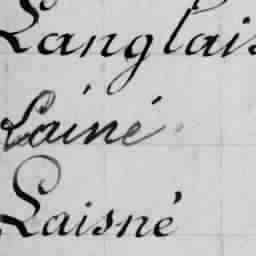 Langlais
Lainé
Laisné